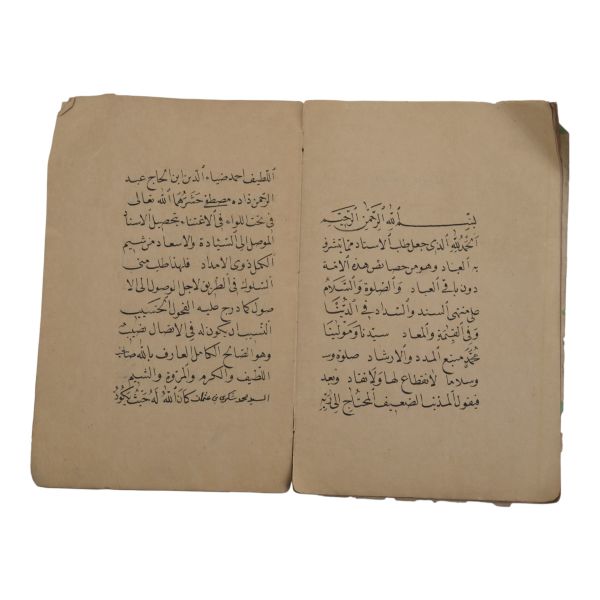 بسم الله الرحمن الرحيم
الحمد لله الذي جعل طلب الاسناد مما يتشرف
به العباد وهو من خصائص هذه الامة
دون باقي العباد والصلوة والسلام
على منتهى السند والسداد في الدنيا
وفي القيمة والمعاد سيدنا ومولينا
محمد منبع المدد والارشاد صلوة وس
وسلاما لا انقطاع لها ولا نفاد وبعد
فيقول المذنب الضعيف المحتاج الى
اللطيف احمد ضياء الدين ابن الحاج عبد
الرحمن زاده مصطفى حشرهما الله تعالى
في تحت اللواء في الاغتناء بتحصيل الاسناد
الموصل الى السيادة والاسعاد من شيم
الكمل ذوى الامداد فلهذا طلب منى
السلوك في الطريق لاجل الوصول الى الا
صول كما درج عليه الفحول الحسيب
النسيب ان يكون له في الاتصال نصيب
وهو الصالح الكامل العارف بالله صاحب
اللطيف والكرم والمروة والشيم
السيد محمد شكرى بن عثمان كان الله له حيث يكون